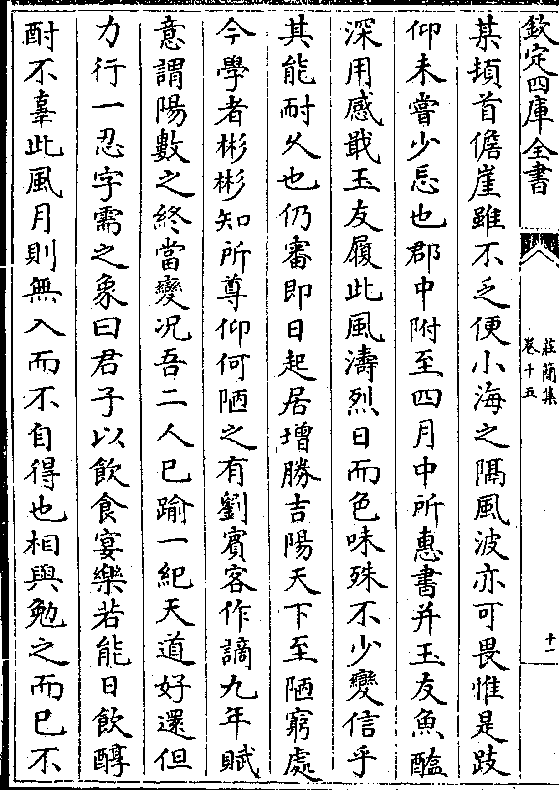 欽定四庫全書
莊簡集
卷十五
十一
某頓首儋崖雖不乏便小海之隔風波亦可畏惟是跂
仰未嘗少忘也郡中附至四月中所惠書并玉友魚醢
深用感戢玉友履此風濤烈日而色味殊不少變信乎
其能耐久也仍審即日起居增勝吉陽天下至陋窮處
今學者彬彬知所尊仰何陋之有劉賓客作謫九年賦
意謂陽數之終當變况吾二人已踰一紀天道好還但
力行一忍字需之象曰君子以飲食宴樂若能日飲醇
酎不辜此風月則無入而不自得也相與勉之而已不